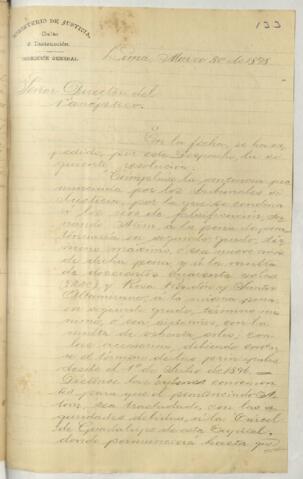 133
MINISTERIO DE JUSTICIA,
Culto
é Instrucción.
DIRECCIÓN GENERAL
Lima, Marzo 30 de 1898.
Señor Director del
Panóptico.
En la fecha, se ha ex-
pedido, por este despacho, la si-
guiente resolución:
"Cúmplase la sentencia pro-
nunciada por los Tribunales de
Justicia, por la que se condena
á los reos de falsificación, Fer-
nando Atom á la pena de peni-
tenciaría en segundo grado, tér-
mino máximo, ó sea nueve años
de dicha pena y á la multa
de doscientos cuarenta soles
y Rosa y Santos
Altamirano, á la misma pena
en segundo grado, término mí-
nimo, ó sea siete años, con la
multa de ochenta soles, con
las accesorias; debiendo contar-
se el término de las principales
desde el 1º de Julio de 1896.—
Dictense las órdenes convenien-
tes para que el sentenciado A-
tom, sea trasladado, con las se-
guridades debidas, á la Cárcel
de Guadalupe de esta Capital,
donde permanecerá hasta que